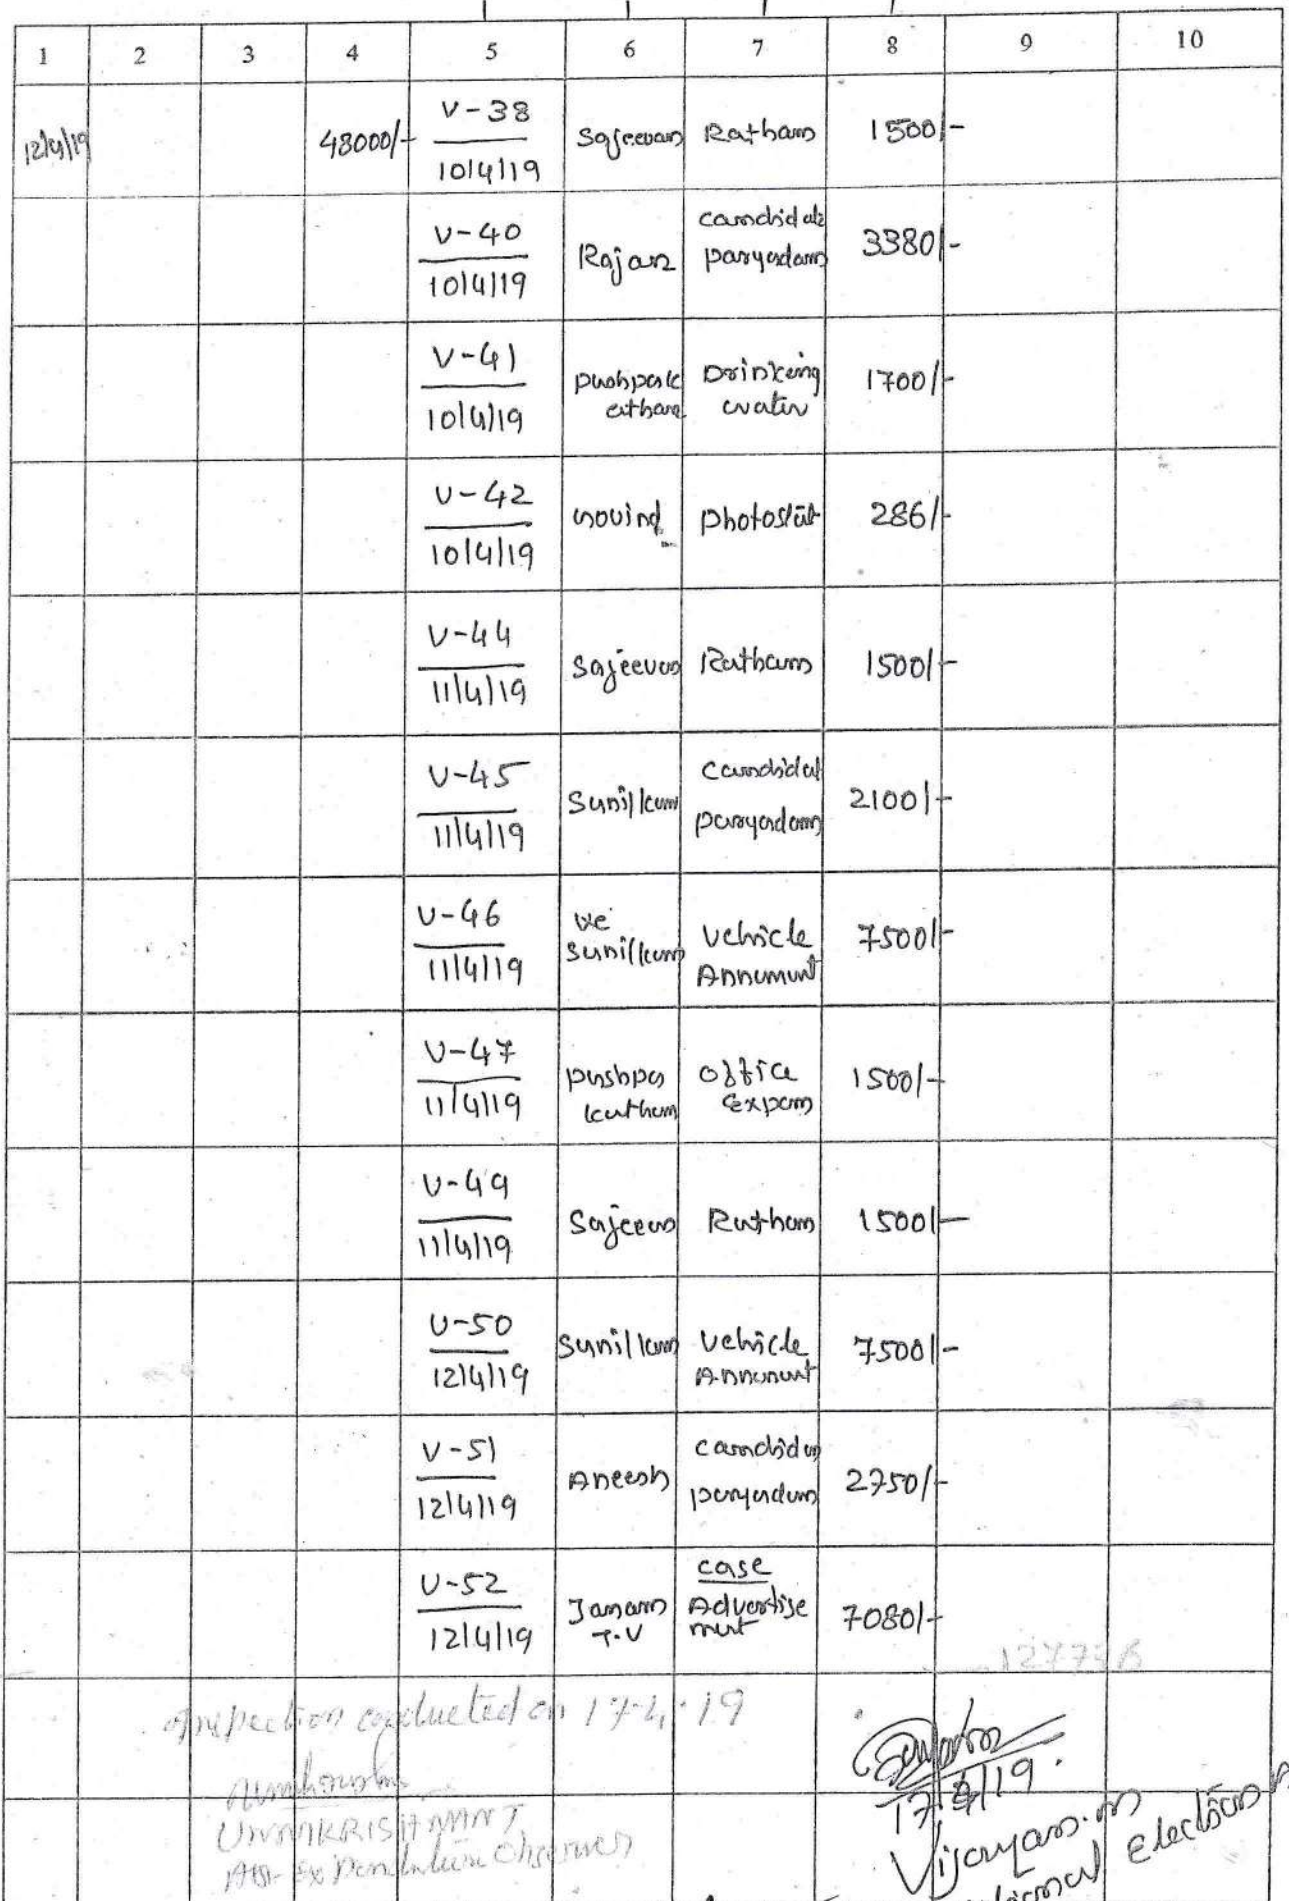 1 2 3 4 5 6 7 8 9 10
12/4/19 48000/- V-38 10/4/19 Sajeevan Ratham 1500/-
V-40 10/4/19 Rajan candidate paryadam 3380/-
V-41 10/4/19 pushpak athan Drinking water 1700/-
V-42 10/4/19 Govind photostat 286/-
V-44 11/4/19 Sajeevan Ratham 1500/-
V-45 11/4/19 Sunilkum candidat paryadam 2100/-
V-46 11/4/19 Sunilkum vehicle Annumunt 7500/-
V-47 11/4/19 pushpa kathan office Expem 1500/-
V-49 11/4/19 Sajeevan Ratham 1500/-
V-50 12/4/19 Sunilkum vehicle Annumunt 7500/-
V-51 12/4/19 Aneesh candidat paryadam 2750/-
V-52 12/4/19 Janam T.V case Advertise ment 7080/-
Inspection conducted on 17-4-19
17/4/19.
UNNIKRISHNAN T
Asst Expenditure Observer
Vijayan.m
Election